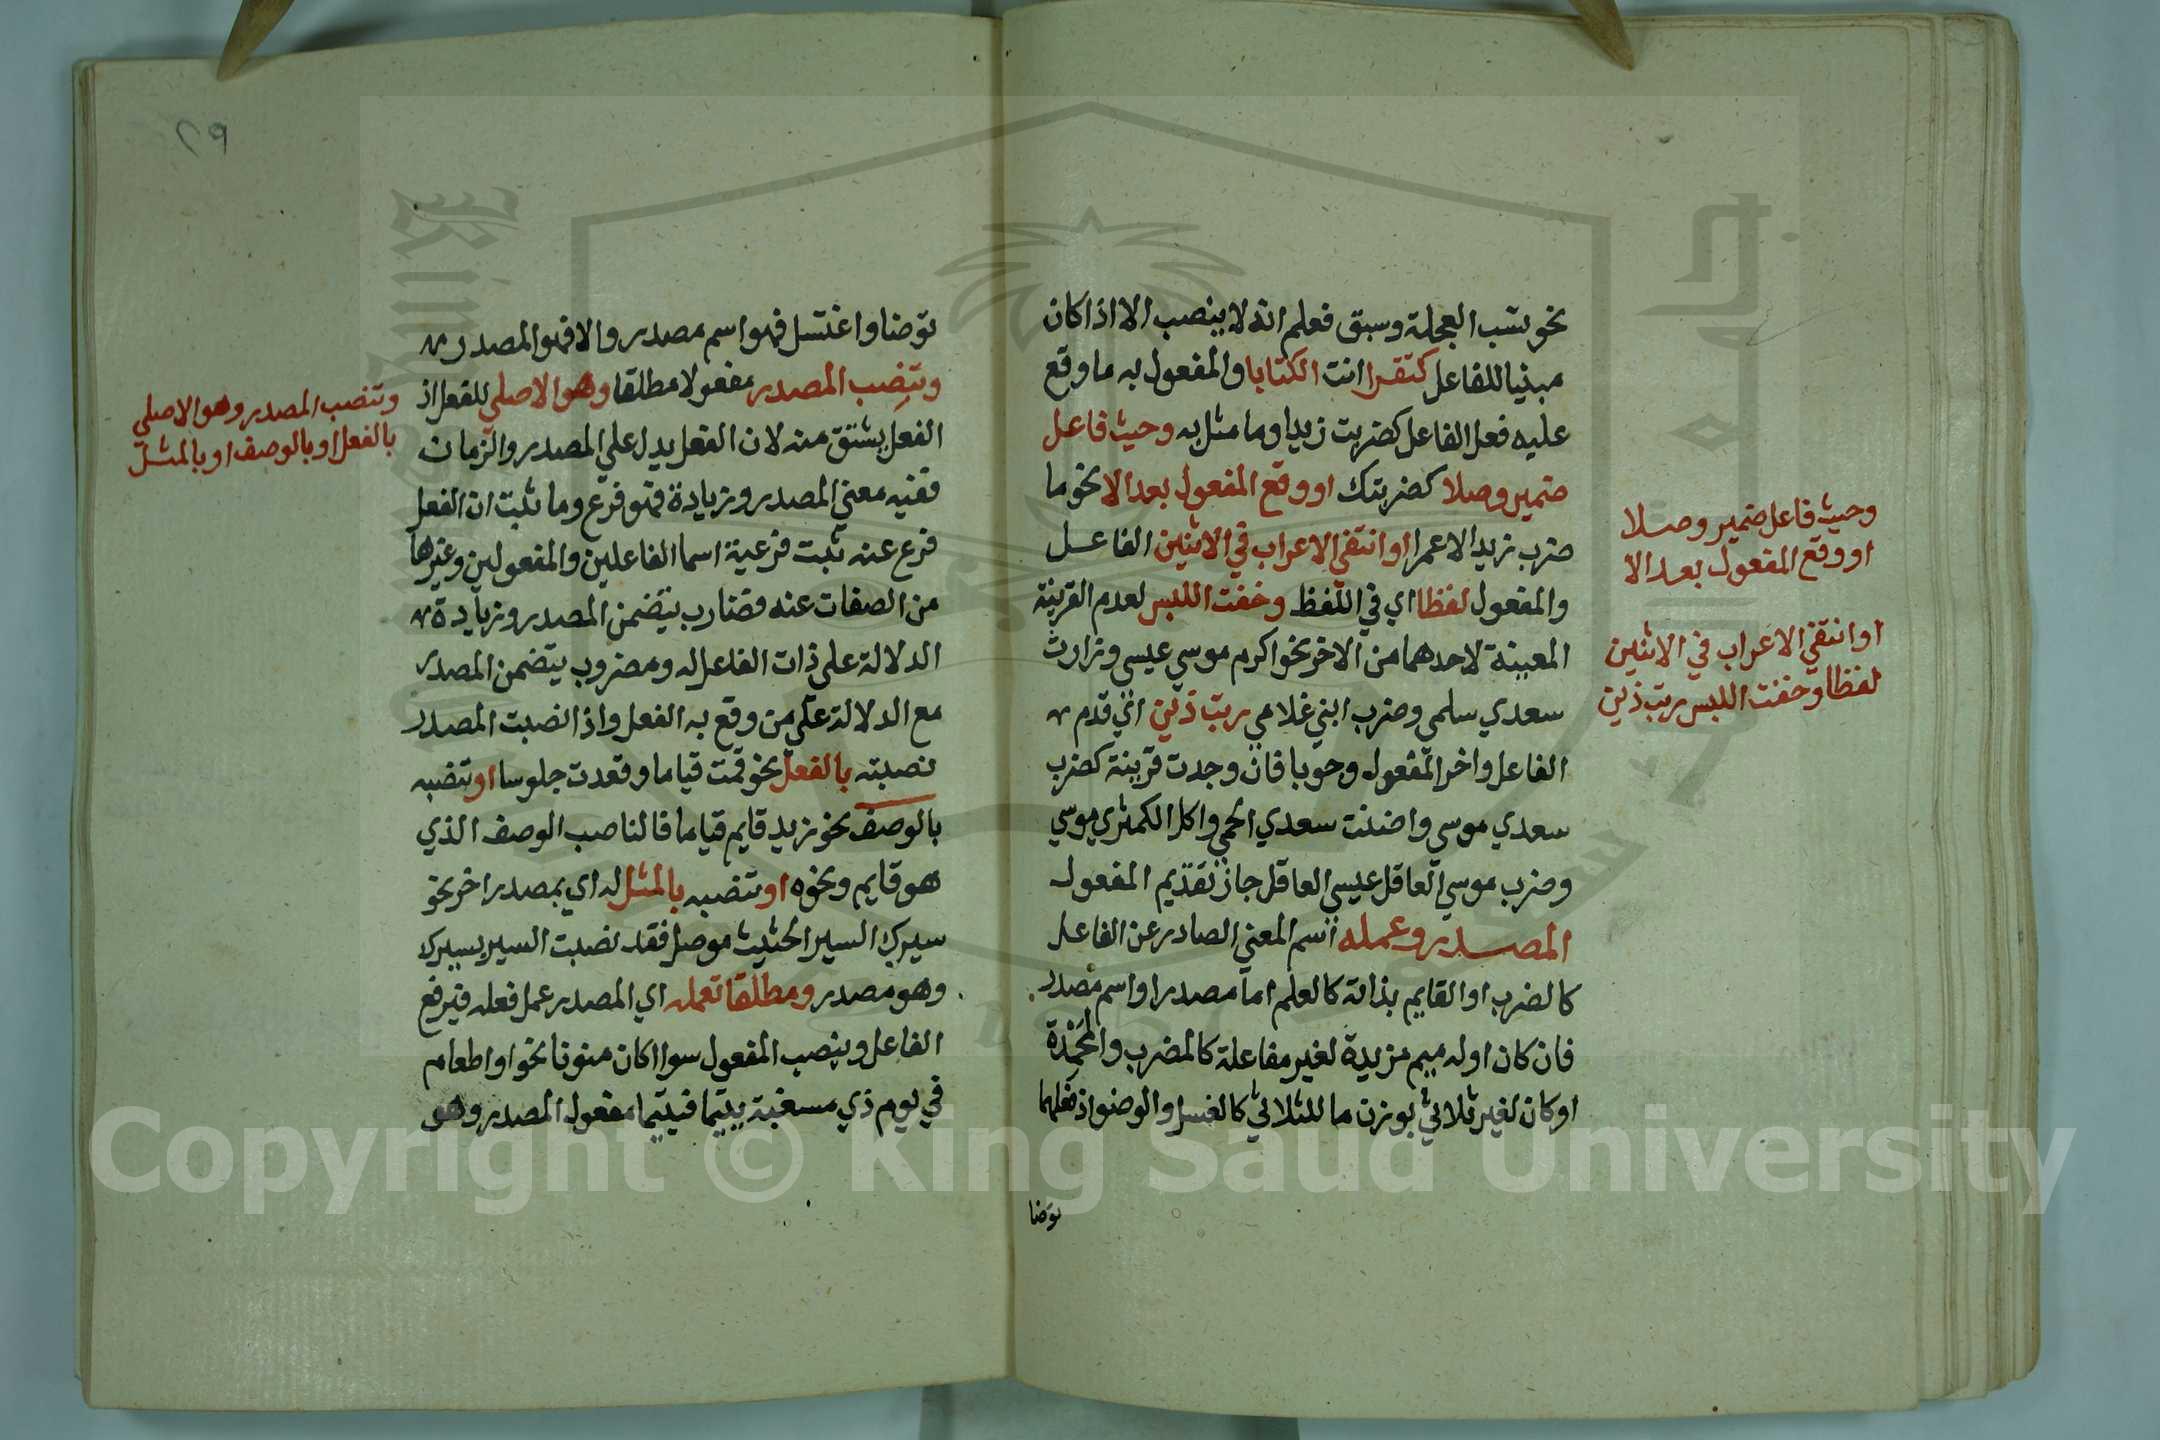 نحو نسب العجلة وسبق فعلم انه لا ينصب الا اذا كان
مبنيا للفاعل كتقرا انت الكتابا والمفعول به ما وقع
عليه فعل الفاعل كضربت زيدا وما مثل به وحيث فاعل
ضمير وصلا كضربتك او وقع المفعول بعد الا نحو ما
ضرب زيد الا عمرا او انتفي الاعراب في الاثنين الفاعل
والمفعول لفظا اي في اللفظ وخفت اللبس لعدم القرينة
المعينة لاحدهما من الاخر نحو اكرم موسي عيسي وزارت
سعدي سلمي وضرب ابني غلامي رتب ذين اي قدم
الفاعل واخر المفعول وجوبا فان وجدت قرينة كضرب
سعدي موسي واضنت سعدي الحمي واكل الكمثري موسي
وضرب موسي العاقل عيسي العاقل جاز تقديم المفعول
المصدر وعمله اسم المعني الصادر عن الفاعل
كالضرب او القايم بذاته كالعلم اما مصدر او اسم مصدر
فان كان اوله ميم مزيدة لغير مفاعلة كالمضرب والمحمدة
او كان لغير ثلاثي بوزن ما للثلاثي كالغسل والوضو اذ فعلهما
توضا
وحيث فاعل ضمير وصلا
او وقع المفعول بعد الا
او انتفي الاعراب في الاثنين
لفظا وخفت اللبس رتب ذين
٢٩
توضا واغتسل فهو اسم مصدر والا فهو المصدر
وتنصب المصدر مفعولا مطلقا وهو الاصلي للفعل اذ
الفعل يشتق منه لان الفعل يدل علي المصدر والزمان
ففيه معني المصدر وزيادة فهو فرع وما ثبت ان الفعل
فرع عنه ثبت فرعية اسما الفاعلين والمفعولين وغيرها
من الصفات عنه فضارب يتضمن المصدر وزيادة
الدلالة علي ذات الفاعل له ومضروب يتضمن المصدر
مع الدلالة علي من وقع به الفعل واذا نصبت المصدر
نصبته بالفعل نحو قمت قياما وقعدت جلوسا او تنصبه
بالوصف نحو زيد قايم قياما فالناصب الوصف الذي
هو قايم ونحوه او تنصبه بالمثل له اي بمصدر اخر نحو
سيرك السير الحثيث موصل فقد نصبت السير بسيرك
وهو مصدر ومطلقا تعمله اي المصدر عمل فعله فيرفع
الفاعل وينصب المفعول سوا كان منونا نحو او اطعام
في يوم ذي مسغبة يتيما فيتيما مفعول المصدر وهو
وتنصب المصدر وهو الاصلي
بالفعل او بالوصف او بالمثل
Copyright © King Saud University